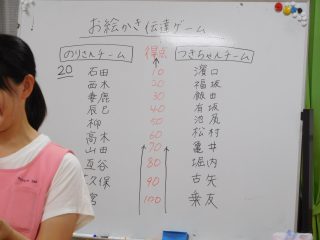 お絵かき伝達ゲーム
のりさんチーム 得点 つきちゃんチーム
20 石田 10 濱口
西木 20 福坂
垂鹿 30 飯田
辰巳 40 有坂
柳 50 池尻
高木 60 松村
山田 70 亀井
亘谷 80 堀内
久保 90 古矢
100 乗友